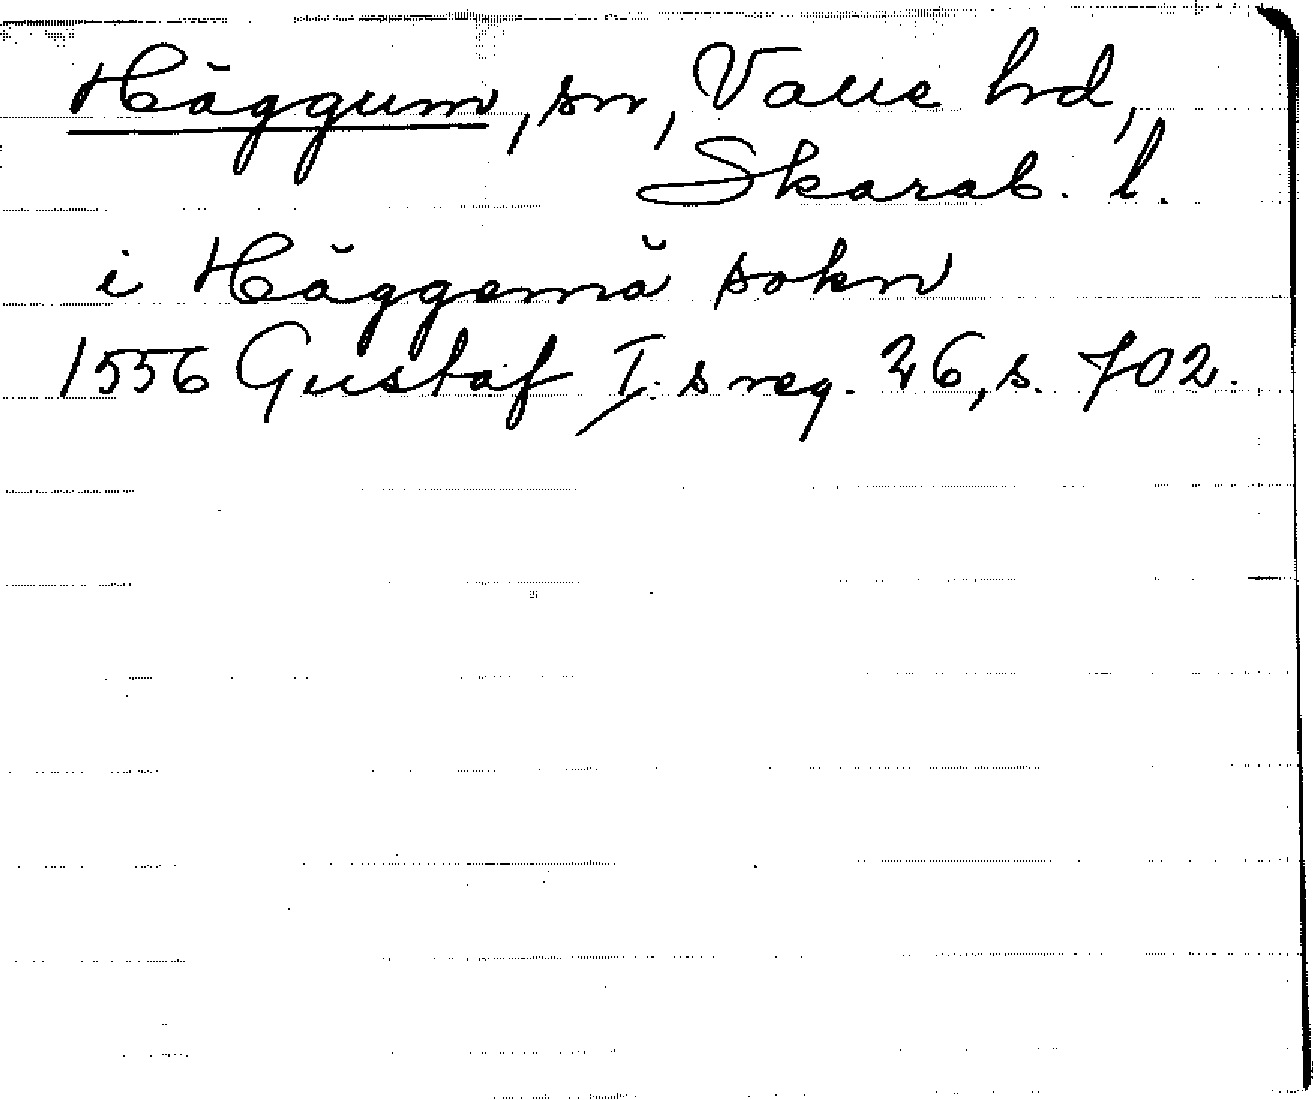 Häggum, sn, Valle hd,
Skarab. l.
i Häggemä sokn
1556 Gustaf I:s reg. 26, s. 702.